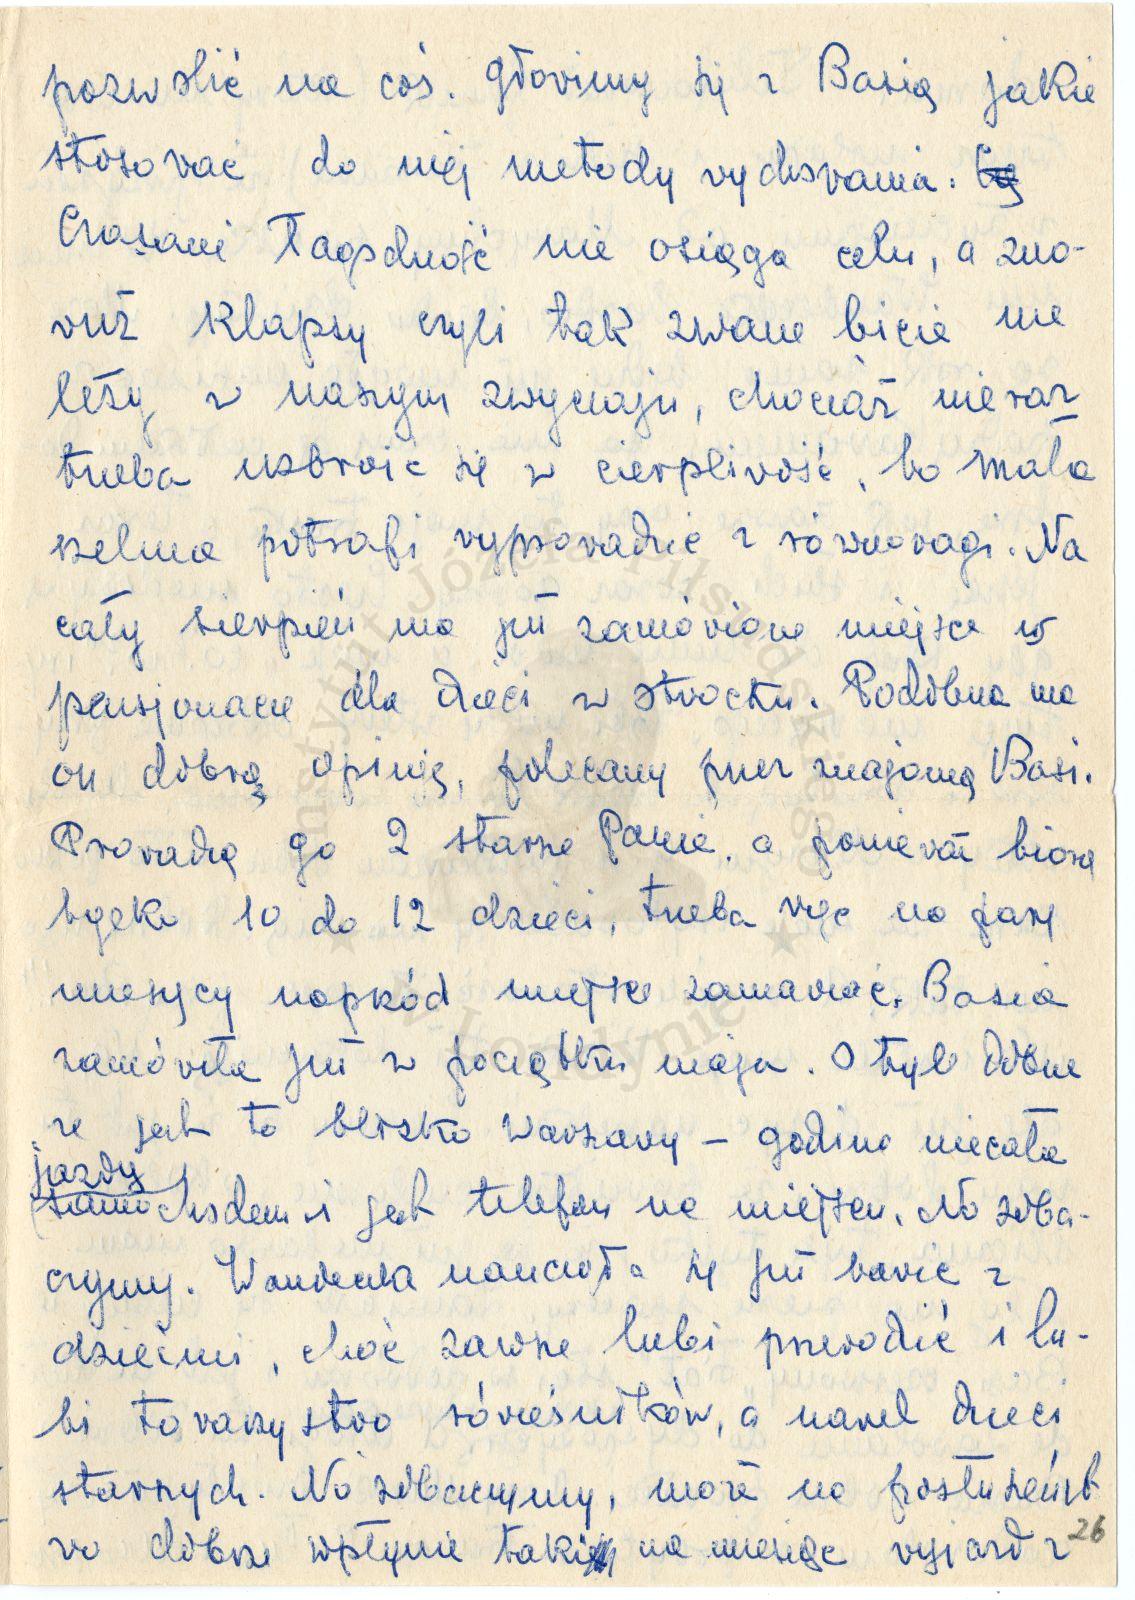 pozwolić na coś. Głovimy się z Basią jakie
stosovać do niej metody vychovania.
Czasami łagodność nie osiąga celu, a zno-
vuż klapsy czyli tak zwane bicie nie
leży w naszym zwyczaju, chociaż nieraz
trzeba uzbroić się w cierplivość, bo mała
szelma potrafi vyprovadzić z równovagi. Na
cały sierpień ma już zamóvione miejsce w
pensjonacie dla dzieci w Otvocku. Podobno ma
on dobrą opinię, polecany przez znajomą Basi.
Provadzą go 2 starsze Panie, a ponieważ biorą
tylko 10 do 12 dzieci, trzeba vięc na parę
miesięcy naprzód miejsce zamaviać. Basia
zamóviła już w początku maja. O tyle dobrze
że jest to blisko Warszavy – godzina niecała
jazdy
samochodem i jest telefon na miejscu. No zoba-
czymy. Wandeczka nauczyła się już bavić z
dziećmi, choć zawsze lubi przevodzić i lu-
bi tovarzystvo róvieśników, a navet dzieci
starszych. No zobaczymy, może na posłuszeńst
vo dobrze wpłynie taki na miesiąc vyjazd z
26
Instytut Józefa Piłsudskiego
w Londynie